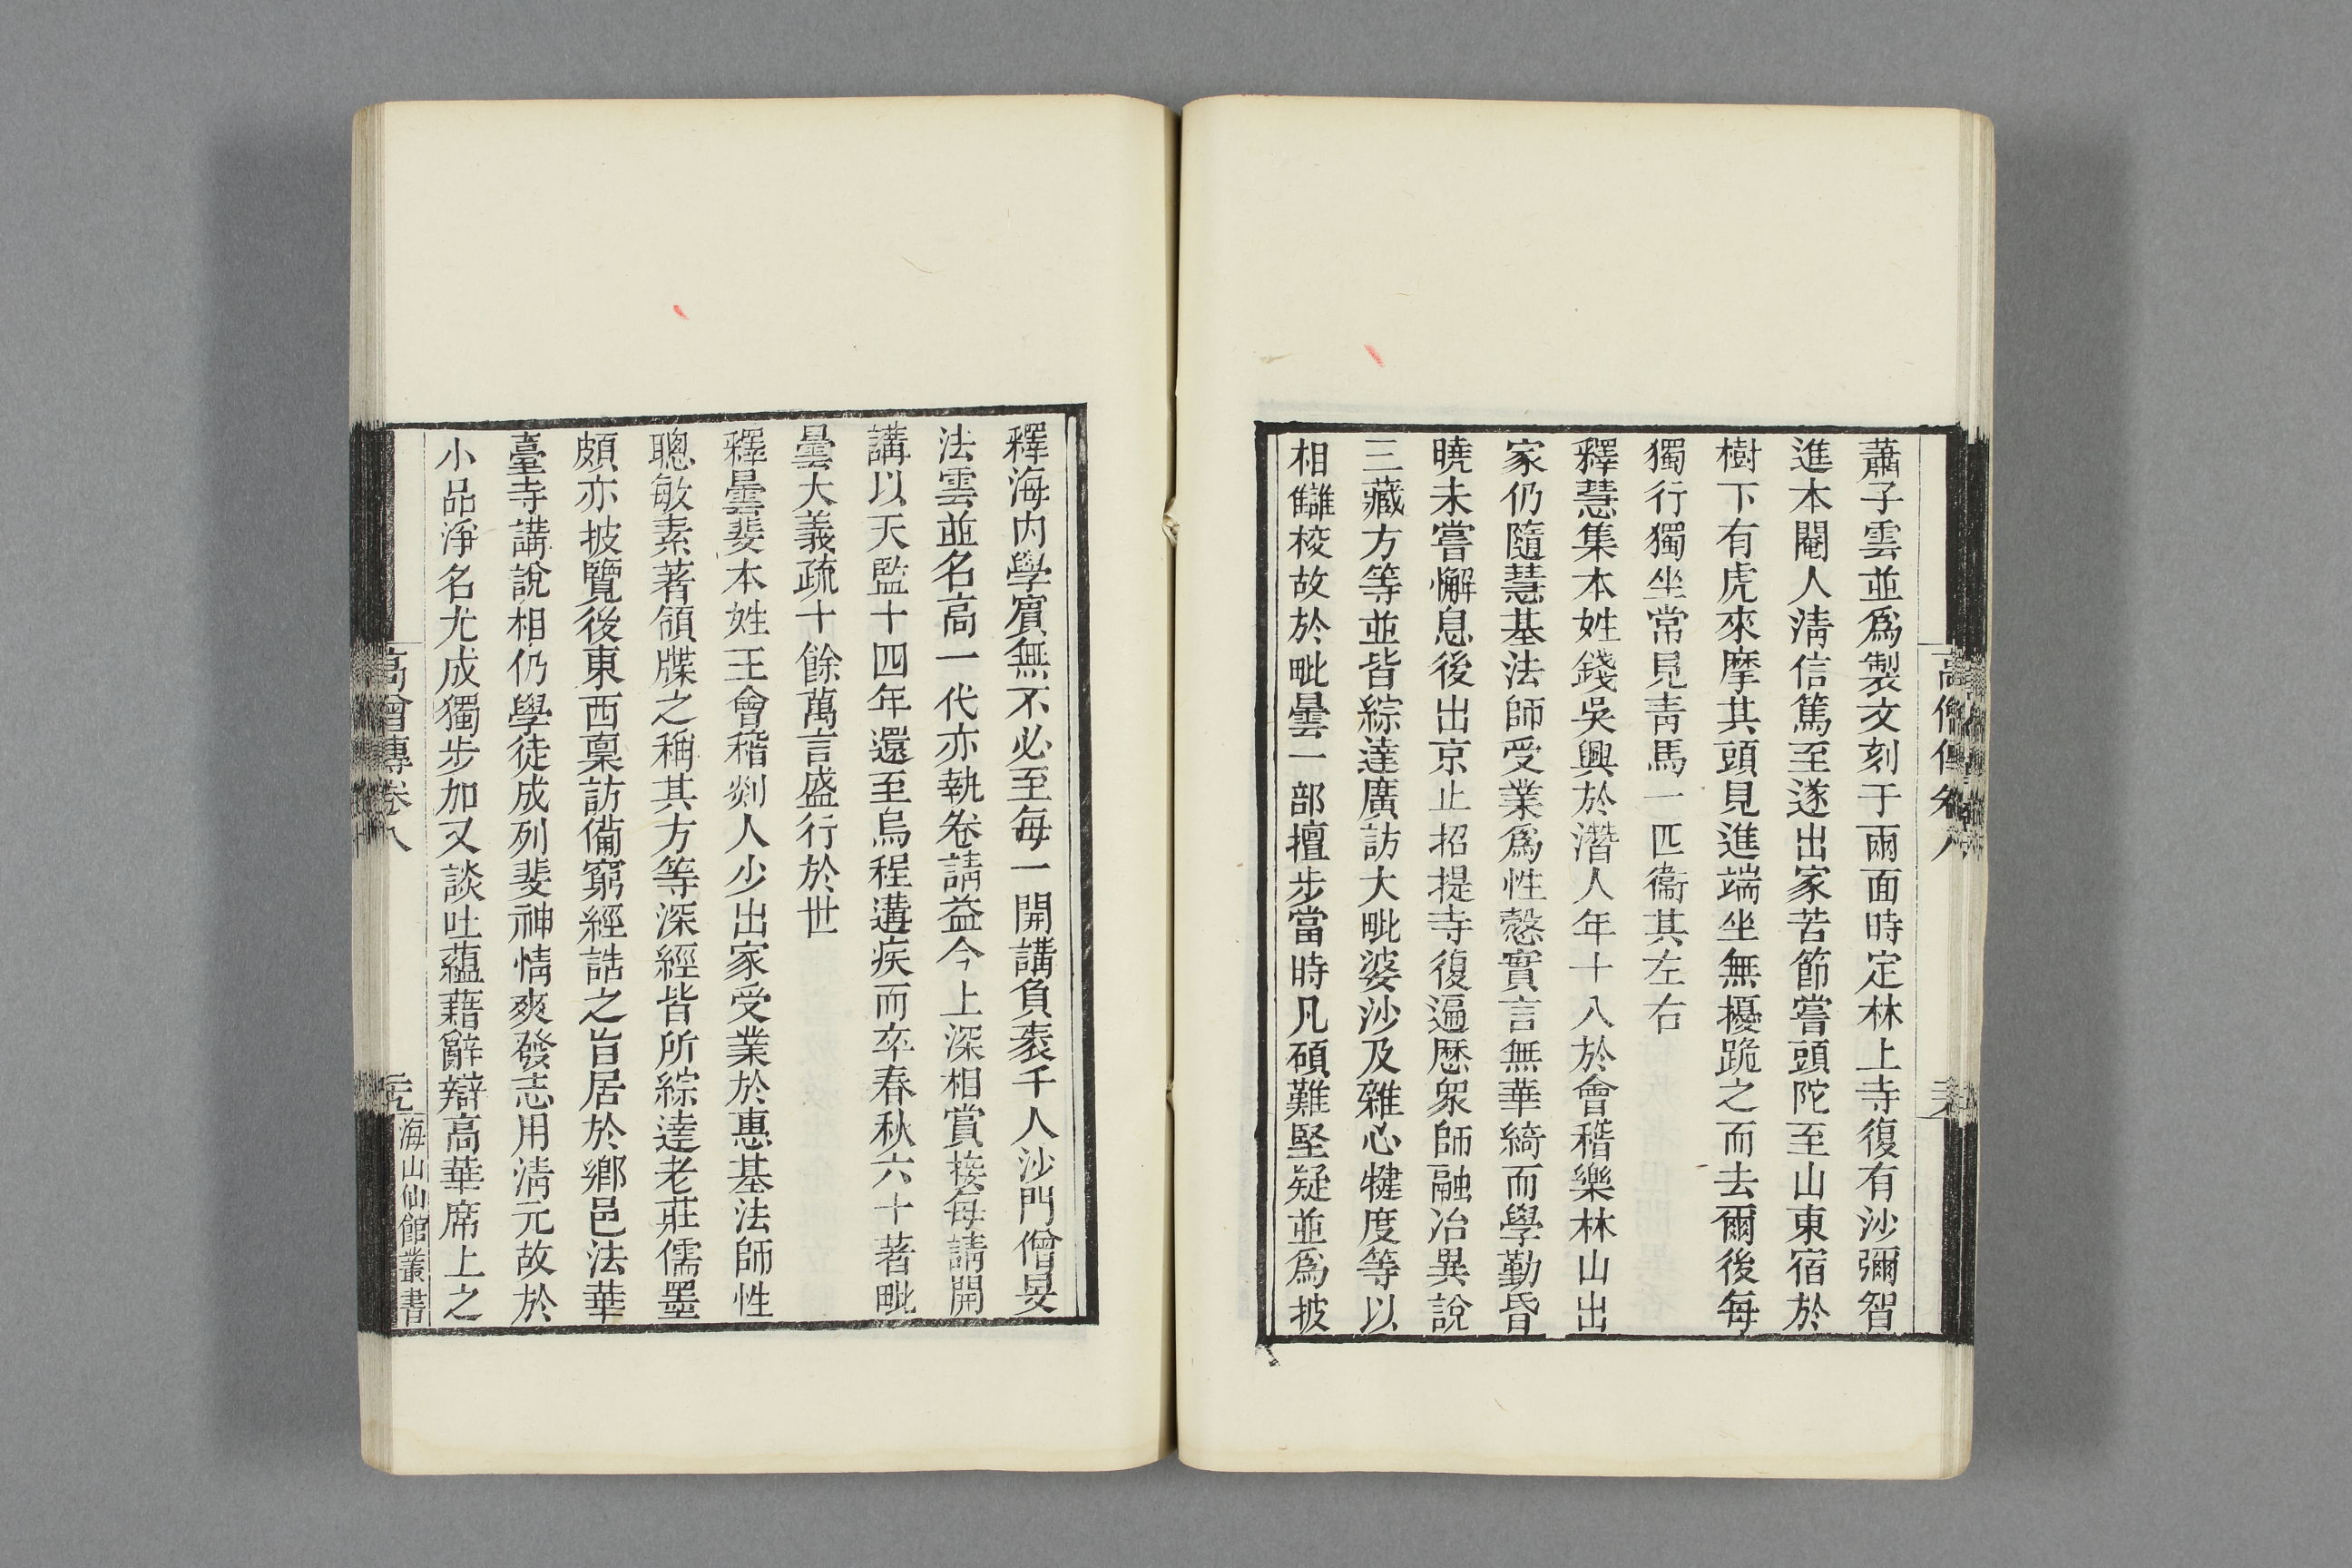 蕭子雲並爲製文刻于兩面時定林上寺復有沙彌智
進本閹人淸信篤至遂出家苦節嘗頭陀至山東宿於
樹下有虎來摩其頭見進端坐無擾跪之而去爾後每
獨行獨坐常見靑馬一匹衞其左右
釋慧集本姓錢吳興於潛人年十八於會稽樂林山出
家仍隨慧基法師受業爲性慤實言無華綺而學勤昏
曉未嘗懈息後出京止招提寺復遍歷眾師融冶異說
三藏方等並皆綜達廣訪大毗婆沙及雜心犍度等以
相讎校故於毗曇一部擅步當時凡碩難堅疑並爲披
釋海内學賓無不必至每一開講負袠千人沙門僧旻
法雲並名高一代亦執卷請益今上深相賞接每請開
講以天監十四年還至烏程遘疾而卒春秋六十著毗
曇大義疏十餘萬言盛行於世
釋曇斐本姓王會稽剡人少出家受業於惠基法師性
聰敏素著領牒之稱其方等深經皆所綜達老莊儒墨
頗亦披覽後東西稟訪備窮經誥之旨居於鄉邑法華
臺寺講說相仍學徒成列斐神情爽發志用淸元故於
小品淨名尤成獨步加又談吐蘊藉辭辯高華席上之
高僧傳卷八
海山仙館叢書